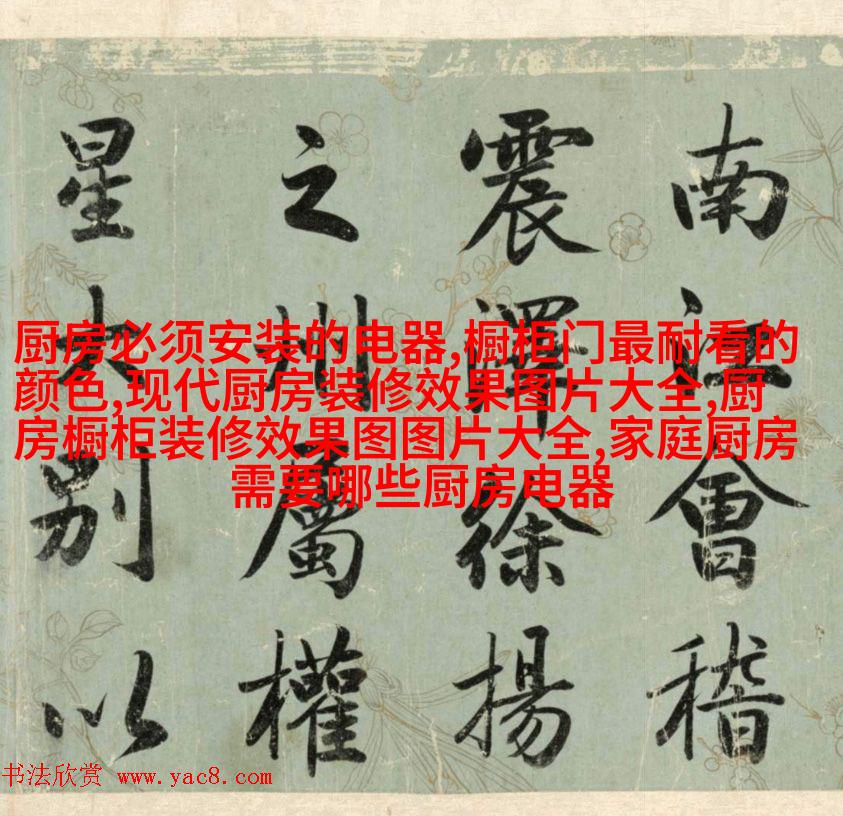 南江會稽
震澤徐揚
之州屬權
星大别以
厨房必须安装的电器,橱柜门最耐看的
颜色,现代厨房装修效果图片大全,厨
房橱柜装修效果图图片大全,家庭厨房
需要哪些厨房电器
书法欣赏 www.yac8.com